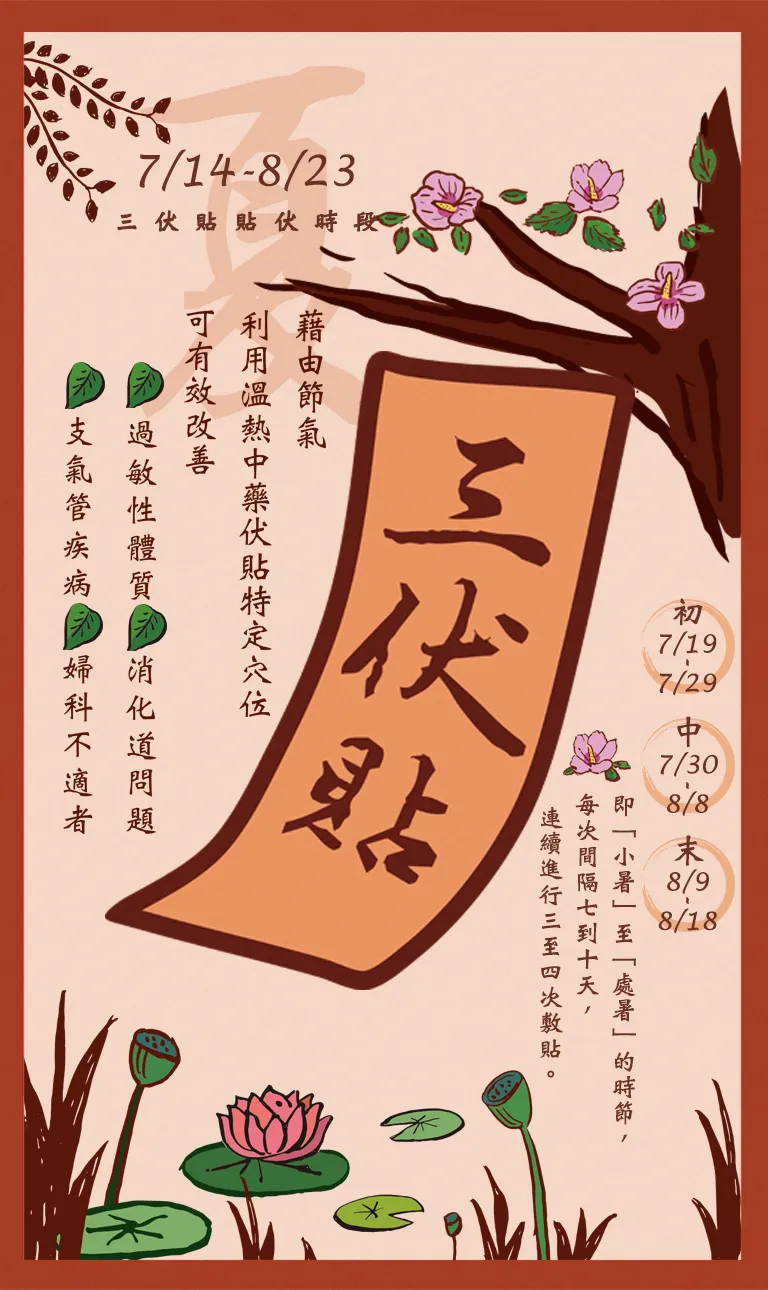 夏
7/14-8/23
三伏貼貼伏時段
三伏貼
藉由節氣
利用溫熱中藥伏貼特定穴位
可有效改善
過敏性體質
消化道問題
支氣管疾病
婦科不適者
初
7/19
-
7/29
中
7/30
-
8/8
末
8/9
-
8/18
即「小暑」至「處暑」的時節，
每次間隔七到十天，
連續進行三至四次敷貼。